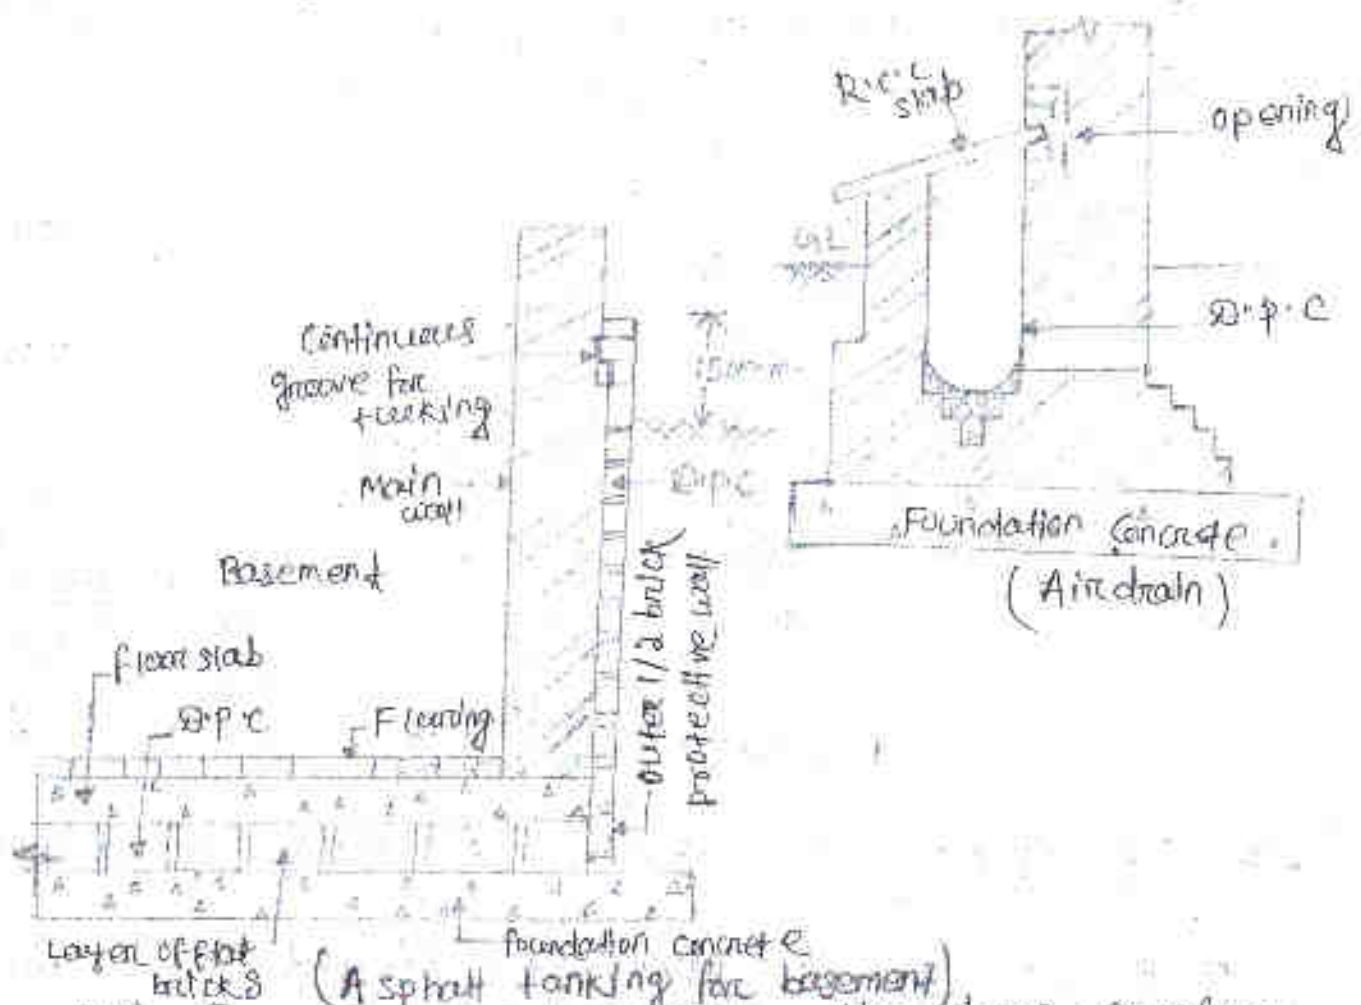 R.C.C
slab
opening
G.L
D.P.C
Foundation Concrete.
(Air drain)
Continuous
groove for
tucking
D.P.C
Main
wall
Basement
outer 1/2 brick
protective wall
floor slab
D.P.C
Flooring
Layer of flat
bricks
foundation concrete
(Asphalt tanking for basement)